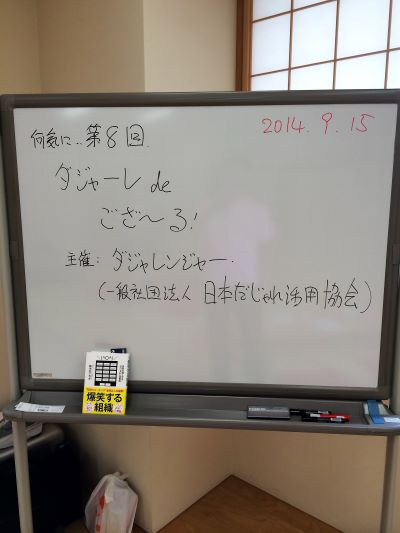 2014.9.15
何気に‥第8回.
ダジャーレ de
ござ〜る!
主催: ダジャレンジャー.
(一般社団法人 日本だじゃれ活用協会)
爆笑する
組織